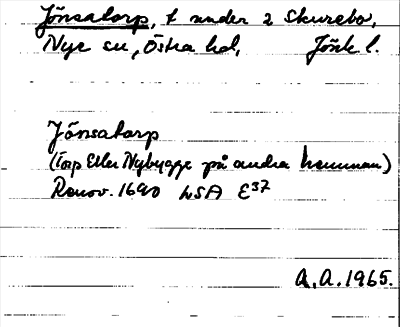 Jönsatorp, t under 2 Skurebo,
Nye sn, Östra hd, Jönk l.
Jönsatorp
(Torp Eller Nybygge på andra hemman)
Renov. 1690 LSA E37
A. A. 1965.